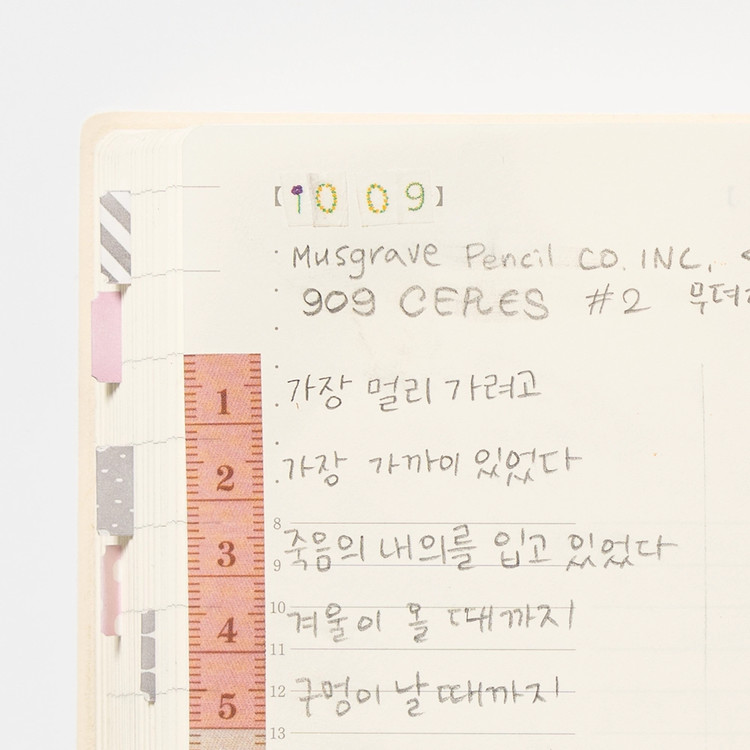 【10 09】
Musgrave Pencil CO. INC,
909 CERES #2
1 가장 멀리 가려고
2 가장 가까이 있었다
8
3 죽음의 내의를 입고 있었다
9
10
4 겨울이 올 때까지
11
5 12 구멍이 날 때까지
13